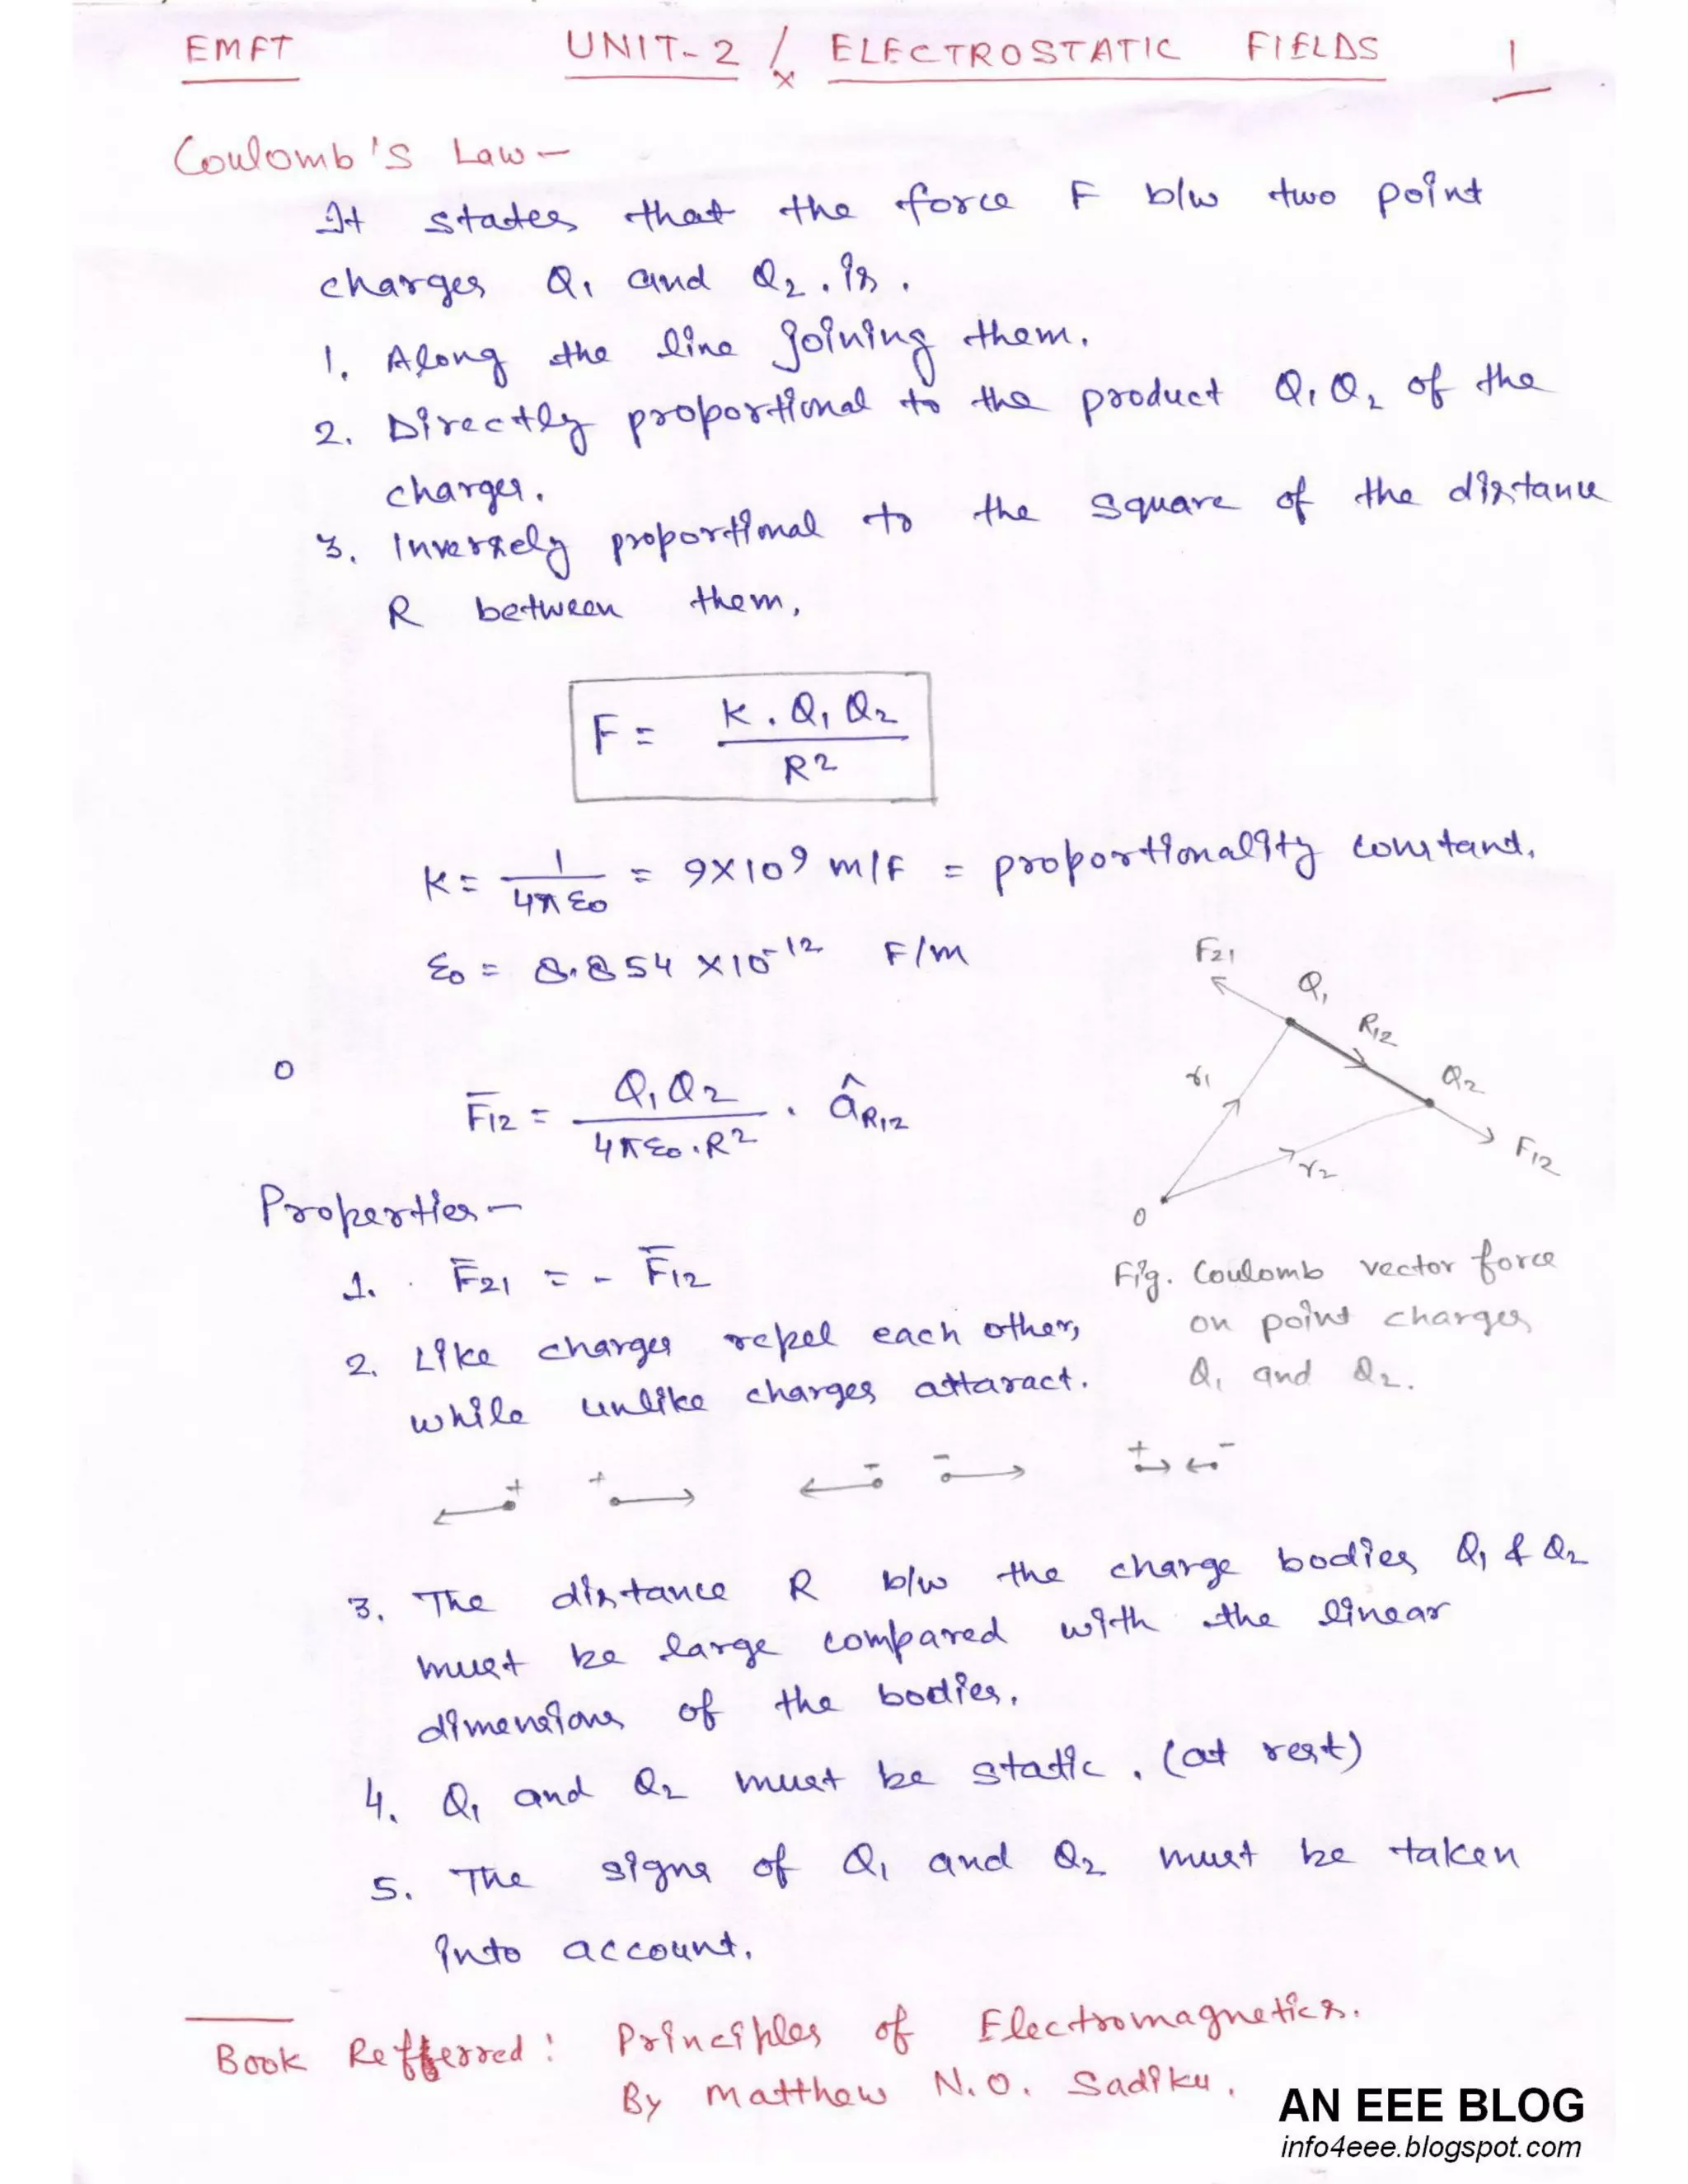 EMFT UNIT-2 / ELECTROSTATIC FIELDS 1
x
Coulomb's Law –
It states that the force F b/w two point
charges Q1 and Q2 . is .
1. Along the line joining them.
2. Directly proportional to the product Q1 Q2 of the
charges.
3. Inversely proportional to the square of the distance
R between them,
F = K . Q1 Q2 / R²
K = 1 / 4π ε0 = 9X10⁹ m/F = proportionality constant.
ε0 = 8.854 X10⁻¹² F/m
F̅12 = Q1 Q2 / 4π ε0 . R² . âR12
F21
Q1
R12
Q2
r1
r2
F12
0
Fig. Coulomb vector force
on point charges
Q1 and Q2.
Properties –
1. . F̅21 = - F̅12
2. Like charges repel each other,
while unlike charges attaract.
+ + - - + -
3. The distance R b/w the charge bodies Q1 & Q2
must be large compared with the linear
dimensions of the bodies.
4. Q1 and Q2 must be static . (at rest)
5. The signs of Q1 and Q2 must be taken
into account.
Book Refferred : Principles of Electromagnetics.
By Matthew N.O. Sadiku .
AN EEE BLOG
info4eee.blogspot.com